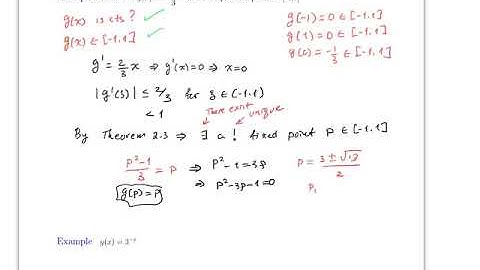 g(x) is cts ? ✓
g(x) ∈ [-1,1] ✓
g(-1) = 0 ∈ [-1,1]
g(1) = 0 ∈ [-1,1]
g(0) = -1/3 ∈ [-1,1]
g' = 2/3 x ⇒ g'(x)=0 ⇒ x=0
|g'(ξ)| ≤ 2/3 for ξ ∈ (-1,1)
< 1
There exist unique
By Theorem 2.3 ⇒ ∃ a ! fixed point P ∈ [-1,1]
(P²-1)/3 = P ⇒ P²-1=3P
P = (3 ± √13)/2
g(P) = P
⇒ P²-3P-1=0
P₁
Example g(x) = 3⁻ˣ